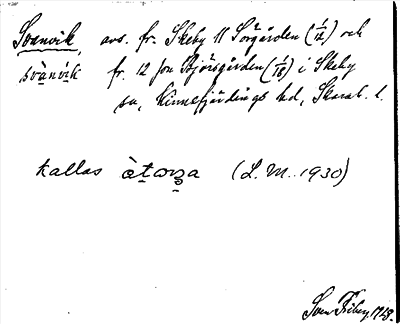 Svanvik, avs. fr. Skeby 11 Sörgården (1/12) och
svànvik fr. 12 Björsgården (1/18) i Skeby
sn, Kinnefjärdings hd, Skarab. l.
kallas (L. M. 1930)
Sven Friberg 1928.